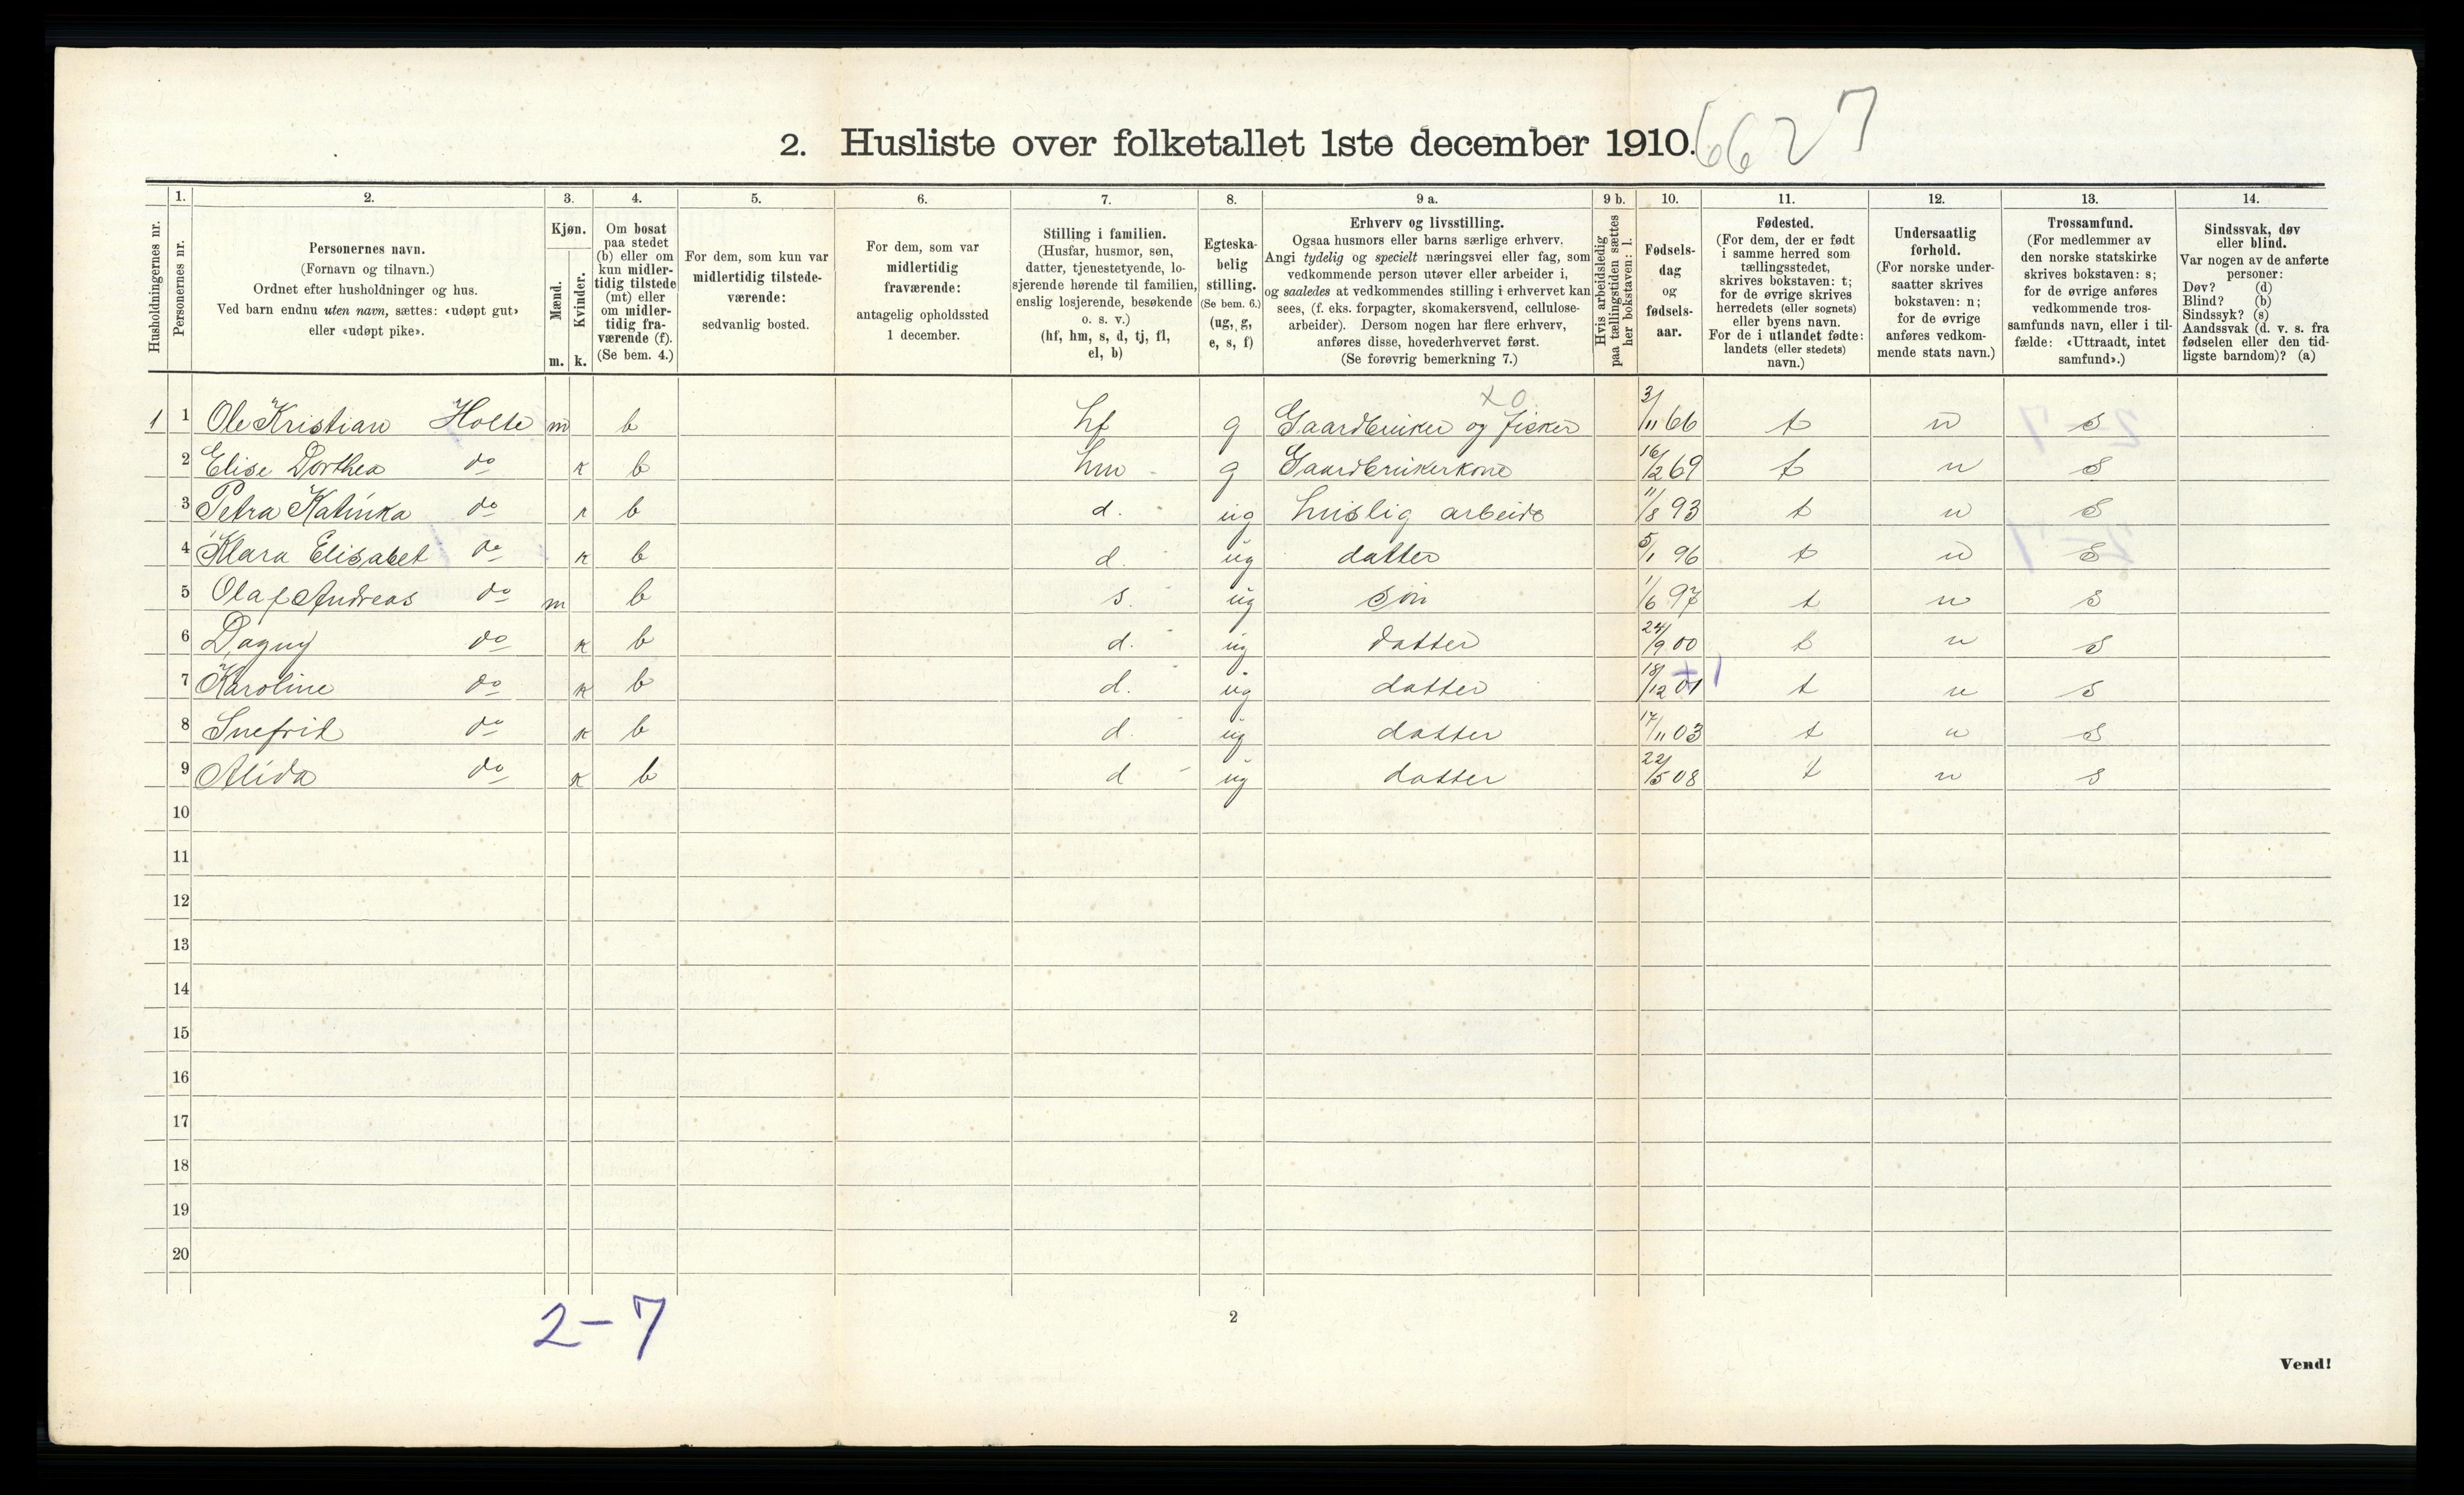 2. Husliste over folketallet 1ste december 1910. 6627
Husholdningernes nr.
1. Personernes nr.
2. Personernes navn.
(Fornavn og tilnavn.)
Ordnet efter husholdninger og hus.
Ved barn endnu uten navn, sættes: «udøpt gut»
eller «udøpt pike».
3. Kjøn.
Mænd. m.
Kvinder. k.
4. Om bosat
paa stedet
(b) eller om
kun midler-
tidig tilstede
(mt) eller
om midler-
tidig fra-
værende (f).
(Se bem. 4.)
5. For dem, som kun var
midlertidig tilstede-
værende:
sedvanlig bosted.
6. For dem, som var
midlertidig
fraværende:
antagelig opholdssted
1 december.
7. Stilling i familien.
(Husfar, husmor, søn,
datter, tjenestetyende, lo-
sjerende hørende til familien,
enslig losjerende, besøkende
o. s. v.)
(hf, hm, s, d, tj, fl,
el, b)
8. Egteska-
belig
stilling.
(Se bem. 6.)
(ug, g,
e, s, f)
9 a. Erhverv og livsstilling.
Ogsaa husmors eller barns særlige erhverv.
Angi tydelig og specielt næringsvei eller fag, som
vedkommende person utøver eller arbeider i,
og saaledes at vedkommendes stilling i erhvervet kan
sees, (f. eks. forpagter, skomakersvend, cellulose-
arbeider). Dersom nogen har flere erhverv,
anføres disse, hovederhvervet først.
(Se forøvrig bemerkning 7.)
9 b. Hvis arbeidsledig
paa tællingstiden sættes
her bokstaven: l.
10. Fødsels-
dag
og
fødsels-
aar.
11. Fødested.
(For dem, der er født
i samme herred som
tællingsstedet,
skrives bokstaven: t;
for de øvrige skrives
herredets (eller sognets)
eller byens navn.
For de i utlandet fødte:
landets (eller stedets)
navn.)
12. Undersaatlig
forhold.
(For norske under-
saatter skrives
bokstaven: n;
for de øvrige
anføres vedkom-
mende stats navn.)
13. Trossamfund.
(For medlemmer av
den norske statskirke
skrives bokstaven: s;
for de øvrige anføres
vedkommende tros-
samfunds navn, eller i til-
fælde: «Uttraadt, intet
samfund».)
14. Sindssvak, døv
eller blind.
Var nogen av de anførte
personer:
Døv? (d)
Blind? (b)
Sindssyk? (s)
Aandssvak (d. v. s. fra
fødselen eller den tid-
ligste barndom)? (a)
x0
1 1 Ole Kristian Holte m b hf g Gaardbruker og fisker 3/11 66 t n s
2 Elise Dorthea do k b hm g Gaardbrukerkone 16/12 69 t n s
3 Petra Katinka do k b d. ug huslig arbeide 11/8 93 t n s
4 Klara Elisabet do k b d. ug datter 5/1 96 t n s
5 Olaf Andreas do m b s. ug søn 1/6 97 t n s
6 Dagny do k b d. ug datter 24/9 00 t n s
7 Karoline do k b d. ug datter 18/12 01 t n s
8 Snefrid do k b d. ug datter 17/11 03 t n s
9 Alida do k b d ug datter 22/5 08 t n s
10
11
12
13
14
15
16
17
18
19
20
2-7
2
Vend!